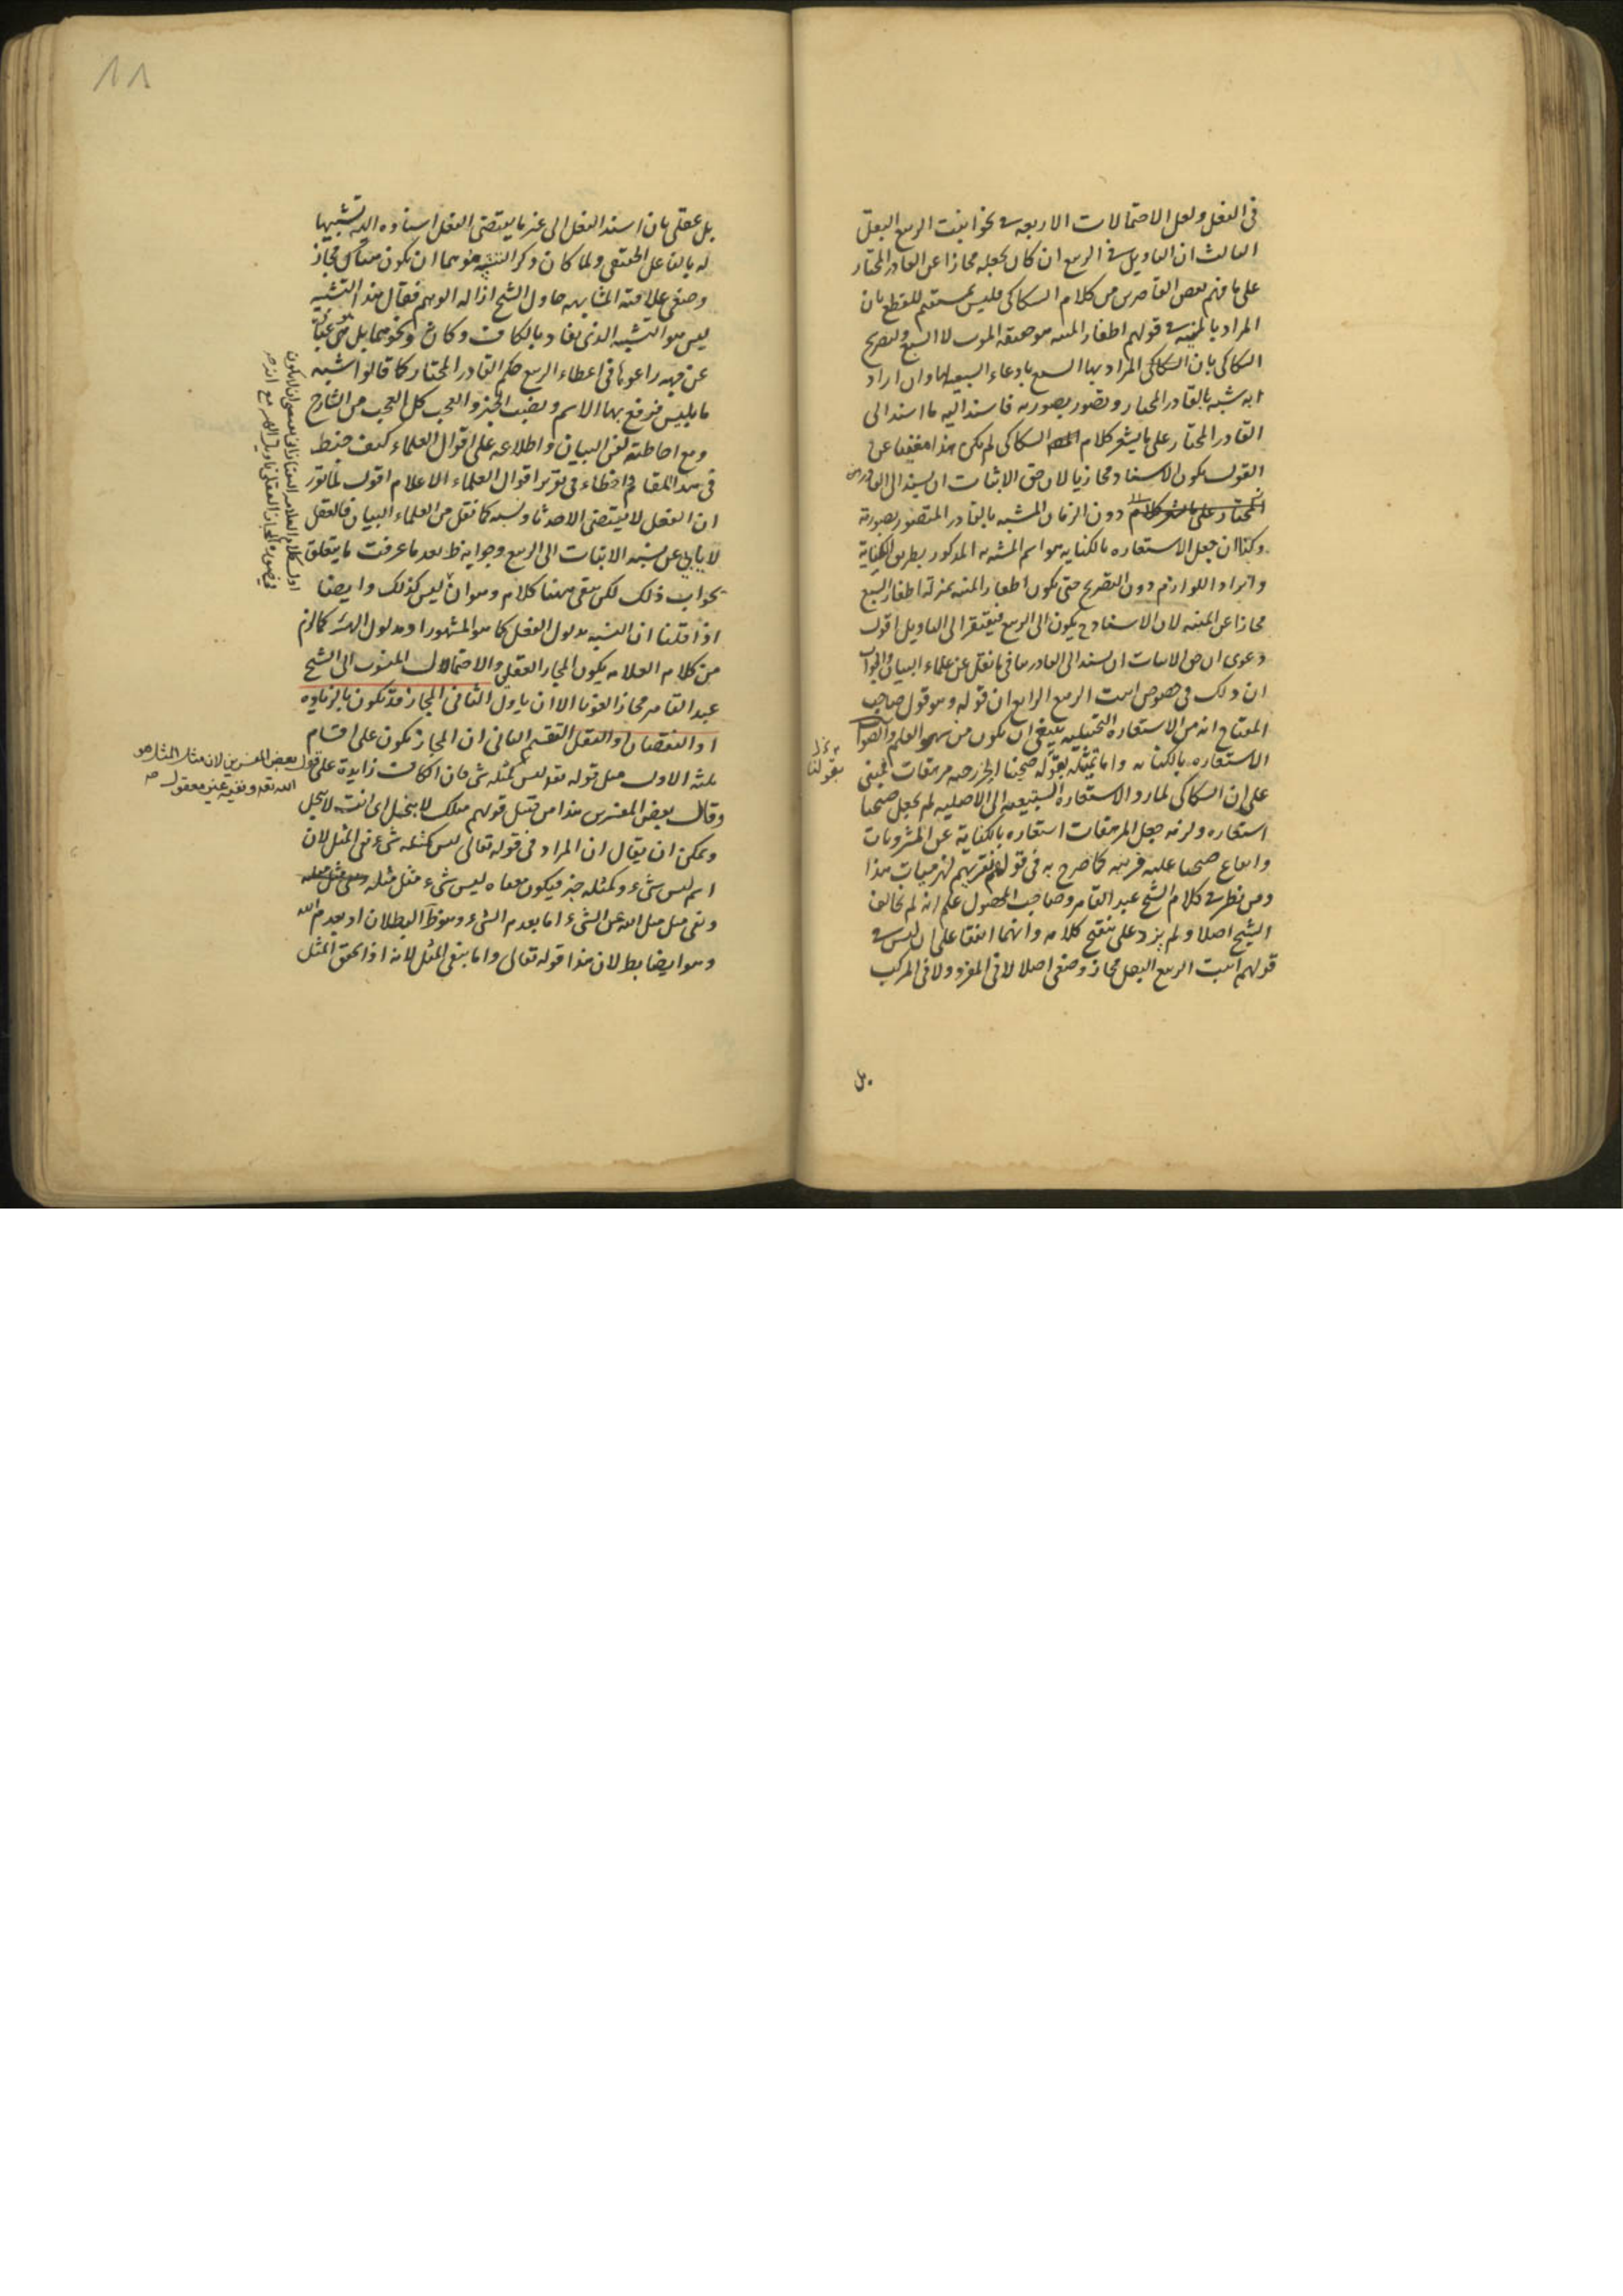 في الفعل ولعل الاحتمالات الاربعة في نحو انبت الربيع البقل
الثالث ان التاويل في الربيع ان كان بجعله مجازا عن القادر المختار
على ما فهم بعض القاصرين من كلام السكاكي فليس بمستقيم للقطع بان
المراد بالمنية في قولهم اظفار المنية هو حقيقة الموت لا السبع ولتصريح
السكاكي بان السكاكي المراد بها السبع بادعاء السبعية لها وان اراد
انه شبه بالقادر المختار وتصور بصورته فاسند اليه ما اسند الى
القادر المختار على ما يشعر كلام السكاكي لم يكن هذا مغنيا عن
القول بكون الاسناد مجازيا لان حق الاثبات ان يسند الى القادر
المختار دون الزمان المشبه بالقادر المتصور بصورته
وكذا ان جعل الاستعارة بالكناية هو اسم المشبه به المذكور بطريق الكناية
وايراد اللوازم دون التصريح حتى يكون اظفار المنية بمنزلة اظفار السبع
مجازا عن المنية لان الاسناد ح يكون الى الربيع فيفتقر الى التاويل اقول
دعوى ان حق الاثبات ان يسند الى القادر ينافي ما نقل عن علماء البيان والجواب
ان ذلك في خصوص انبت الربيع الرابع ان قوله وهو قول صاحب
المفتاح انه من الاستعارة التخييلية ينبغي ان يكون من سهو القلم والصواب
الاستعارة بالكناية واما تمثيله بقوله صبحنا الخزرجية مرهفات فمبني
على ان السكاكي لما رد الاستعارة التبعية الى الاصلية لم يجعل صبحنا
استعارة ولزمه جعل المرهفات استعارة بالكناية عن المشروبات
وايقاع صبحنا عليه قرينة كما صرح به في قولهم نقريهم لهزميات هذا
ومن نظر في كلام الشيخ عبد القاهر وصاحب المحصول علم انه لم يخالف
الشيخ اصلا ولم يزد على تنقيح كلامه وانهما اتفقا على ان ليس في
قولهم انبت الربيع البقل مجاز وضعي اصلا لا في المفرد ولا في المركب
بل
١١
بل عقلي بان اسند الفعل الى غير ما يقتضي الفعل اسناده اليه تشبيها
له بالفاعل الحقيقي ولما كان ذكر التشبيه موهما ان يكون هناك مجاز
وضعي علاقته المشابهة حاول الشيخ ازالة الوهم فقال هذا التشبيه
ليس هو التشبيه الذي يفاد بالكاف وكان ونحوهما بل هي عبارة
عن جهة راعوها في اعطاء الربيع حكم القادر المختار كما قالوا شبه
ما بليس فرفع بها الاسم ونصب الخبر والعجب كل العجب من الشارح
ومع احاطته بفن البيان واطلاعه على اقوال العلماء كيف خبط
في هذا المقام واخطاء في تقرير اقوال العلماء الاعلام اقول لما تقرر
ان الفعل لا يقتضي الا حدثا ونسبة كما نقل من العلماء البيان فالعقل
لا يابى عن نسبة الاثبات الى الربيع وجوابه ظ بعد ما عرفت ما يتعلق
بجواب ذلك لكن بقي ههنا كلام وهو ان ليس كذلك وايضا
اذا قلنا ان النسبة مدلول الفعل كما هو المشهور او مدلول الهيئة كما لزم
من كلام العلامة يكون المجاز العقلي والاحتمالات المنسوب الى الشيخ
عبد القاهر مجازا لغويا الا ان ياول الثاني المجاز قد يكون بالزيادة
او النقصان او النقل التقسيم الثاني ان المجاز يكون على اقسام
ثلثة الاول مثل قوله تع ليس كمثله شئ فان الكاف زايدة
وقال بعض المفسرين هذا من قبيل قولهم مثلك لا يبخل اى انت لا تبخل
ويمكن ان يقال ان المراد في قوله تعالى ليس كمثله شئ نفي المثل لان
اسم ليس شئ وكمثله خبر فيكون معناه ليس شئ مثل مثله
ونفي مثل مثل الله عن الشئ اما بعدم الشئ وهو ظ البطلان او بعدم الله
وهو ايضا بط لان هذا قوله تعالى واما بنفي المثل لانه اذا تحقق المثل
على قول بعض المفسرين لان مثل المثل هو
الله تع ونفيه غير معقول